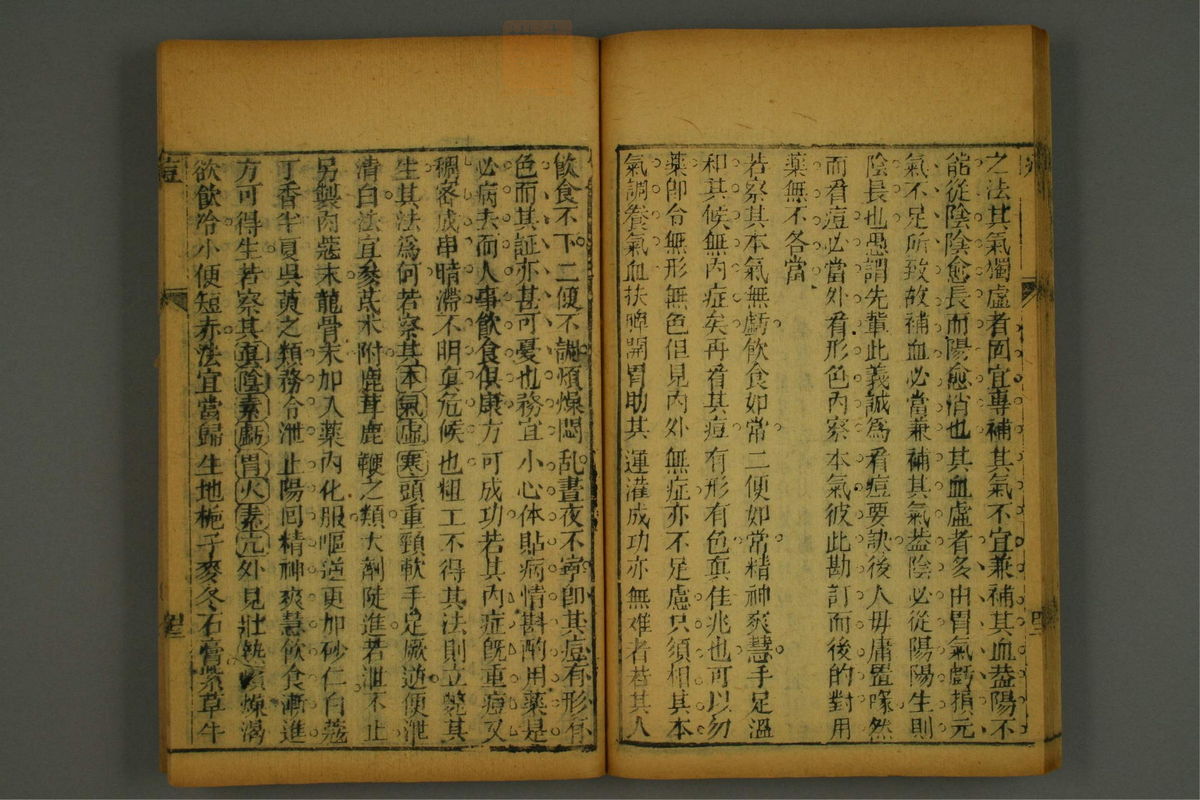 之法其氣獨虛者固宜專補其氣不宜兼補其血蓋陽不
能從陰陰愈長而陽愈消也其血虛者多由胃氣虧損元
氣不足所致故補血必當兼補其氣蓋陰必從陽陽生則
陰長也愚謂先輩此義誠為看痘要訣後人毋庸置喙然
而看痘必當外看形色內察本氣彼此勘訂而後的對用
藥無不各當
若察其本氣無虧飲食如常二便如常精神爽慧手足溫
和其候無內症矣再看其痘有形有色真佳兆也可以勿
藥即令無形無色但見內外無症亦不足慮只須相其本
氣調養氣血扶脾開胃助其運灌成功亦無難者若其人
飲食不下二便不調煩燥悶乱晝夜不寧即其痘有形有
色而其証亦甚可憂也務宜小心体貼病情斟酌用藥是
必病去而人事飲食俱康方可成功若其內症旣重痘又
稠密成串暗滯不明真危候也粗工不得其法則立斃其
生其法為何若察其本氣虛寒頭重頸軟手足厥逆便泄
清白法宜參茋朮附鹿茸鹿鞭之類大劑陡進若泄不止
另製肉蔻末龍骨末加入藥內化服嘔逆更加砂仁白蔻
丁香半夏吳萸之類務令泄止陽回精神爽慧飲食漸進
方可得生若察其真陰素虧胃火素亢外見壯熱煩燥渴
欲飲冷小便短赤法宜當歸生地梔子麥冬石膏紫草牛